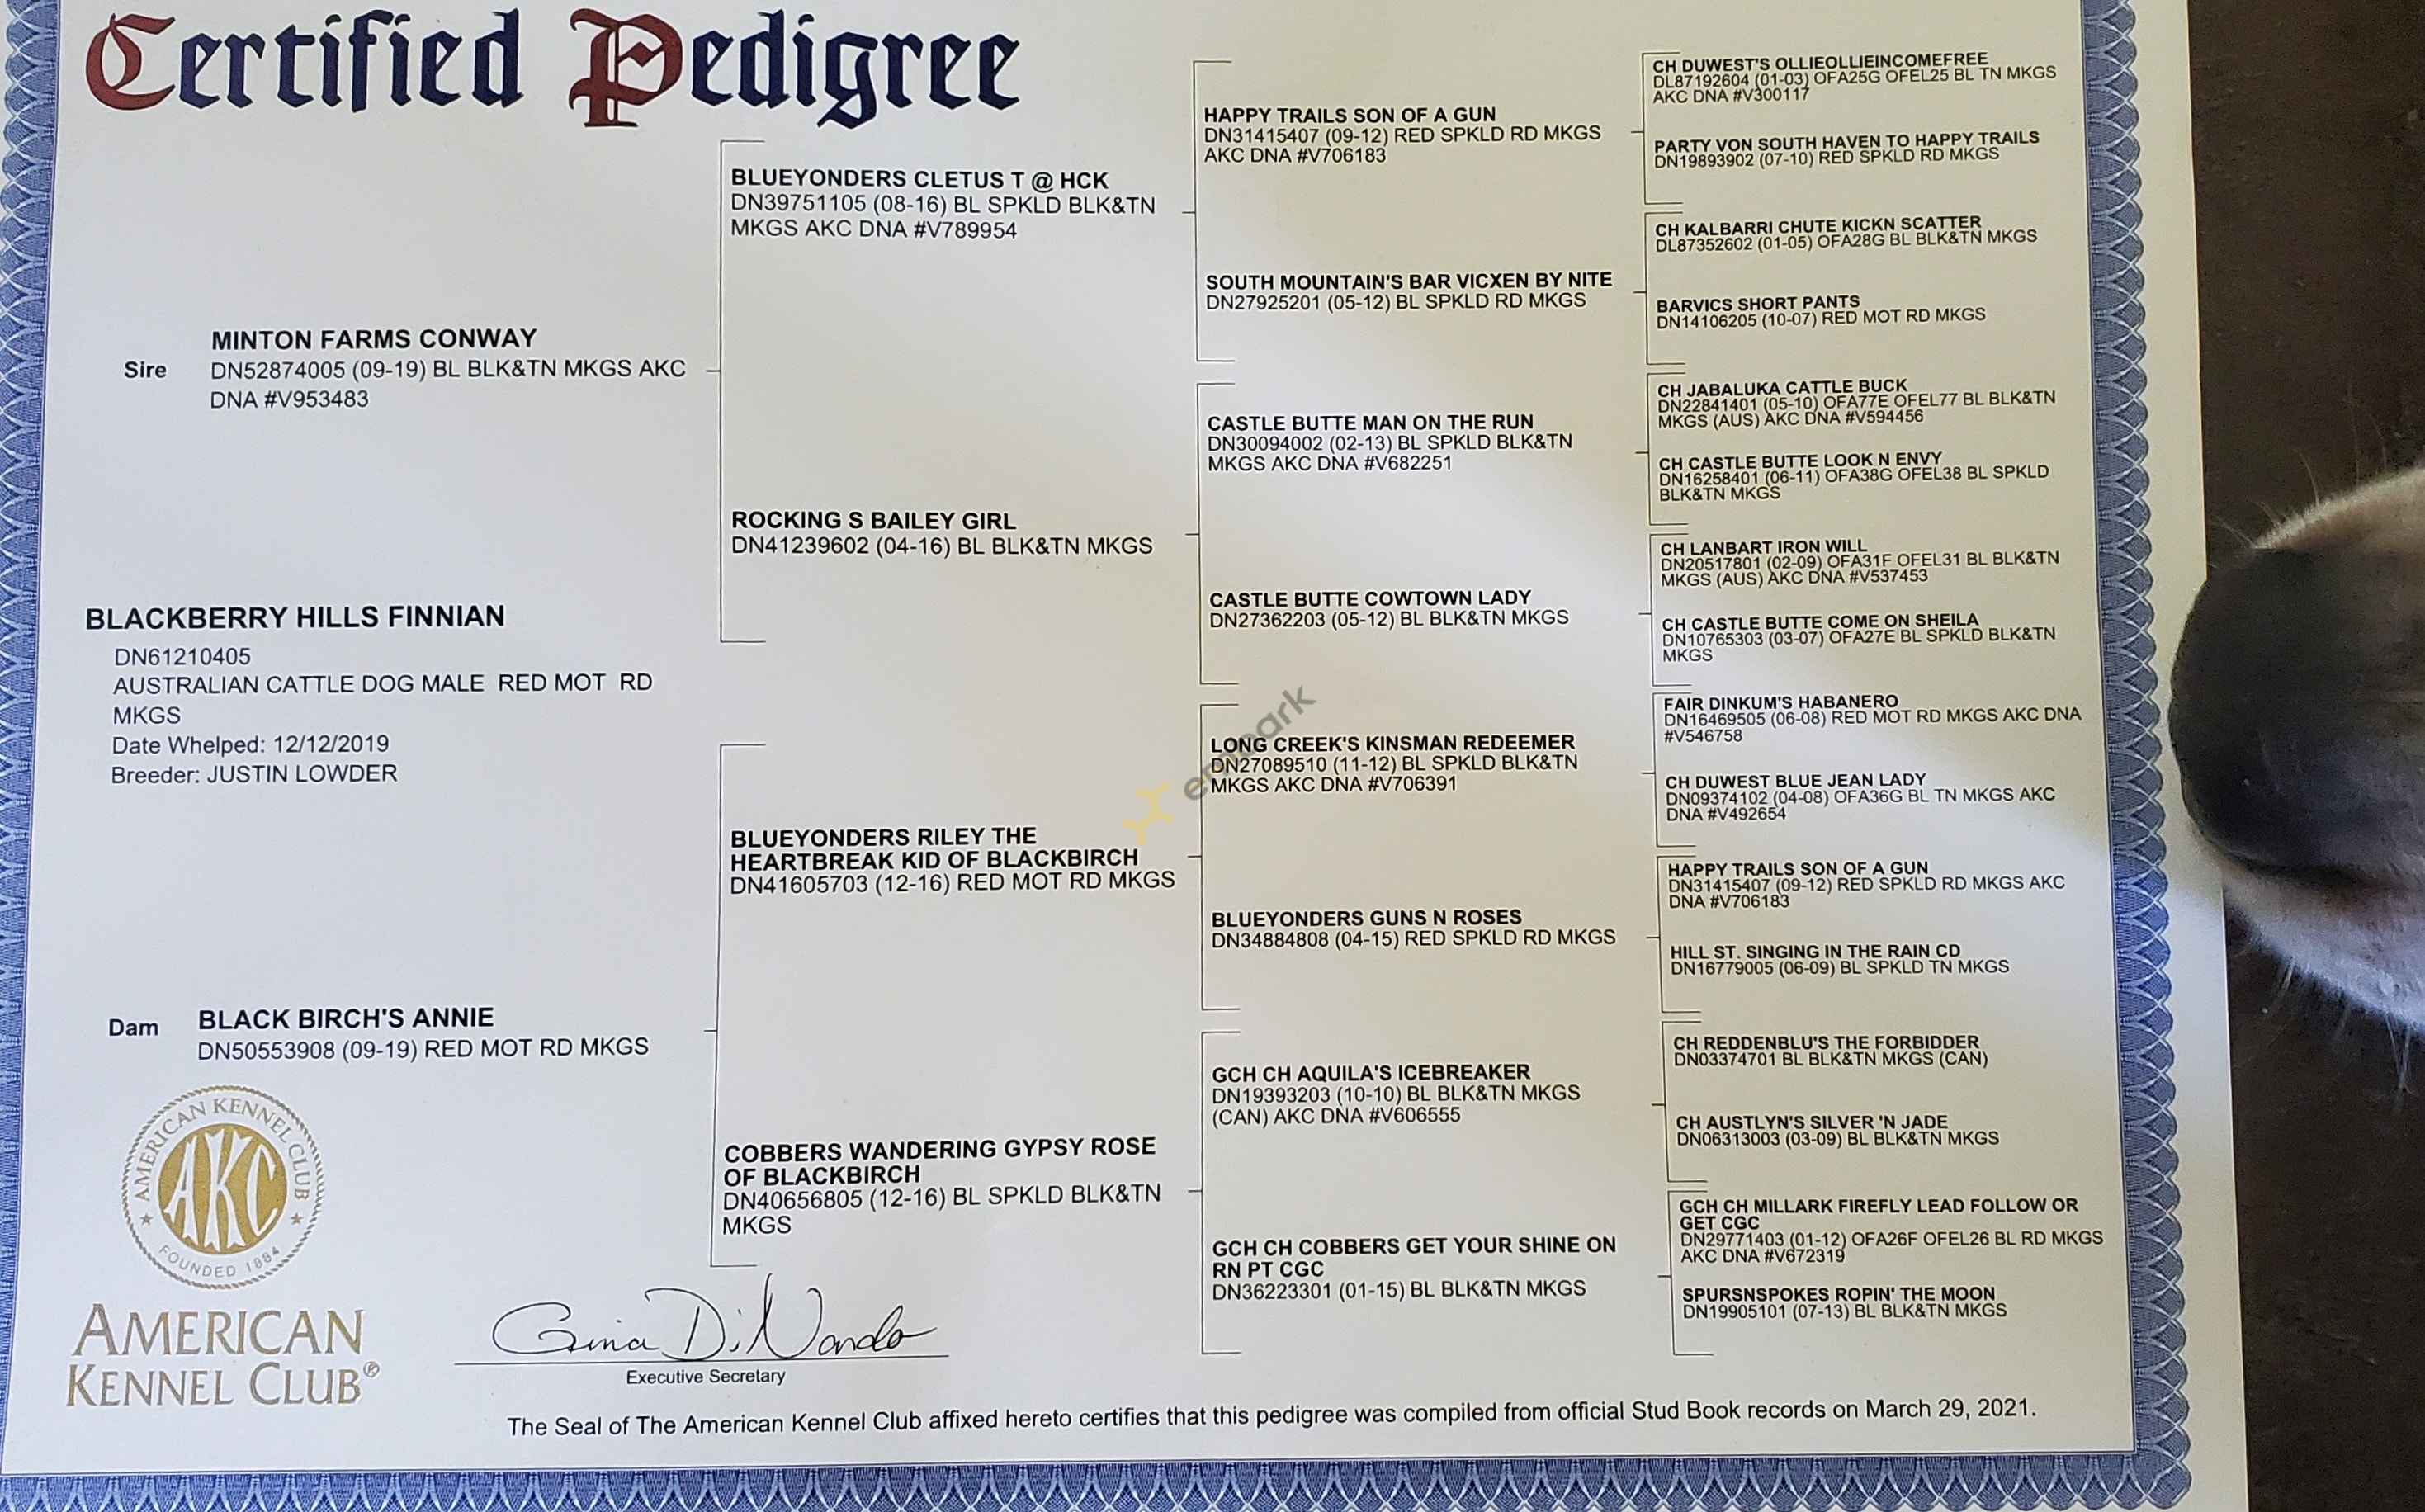 Certified Pedigree
Sire
MINTON FARMS CONWAY
DN52874005 (09-19) BL BLK&TN MKGS AKC
DNA #V953483
BLACKBERRY HILLS FINNIAN
DN61210405
AUSTRALIAN CATTLE DOG MALE RED MOT RD
MKGS
Date Whelped: 12/12/2019
Breeder: JUSTIN LOWDER
Dam
BLACK BIRCH'S ANNIE
DN50553908 (09-19) RED MOT RD MKGS
BLUEYONDERS CLETUS T @ HCK
DN39751105 (08-16) BL SPKLD BLK&TN
MKGS AKC DNA #V789954
ROCKING S BAILEY GIRL
DN41239602 (04-16) BL BLK&TN MKGS
BLUEYONDERS RILEY THE
HEARTBREAK KID OF BLACKBIRCH
DN41605703 (12-16) RED MOT RD MKGS
COBBERS WANDERING GYPSY ROSE
OF BLACKBIRCH
DN40656805 (12-16) BL SPKLD BLK&TN
MKGS
HAPPY TRAILS SON OF A GUN
DN31415407 (09-12) RED SPKLD RD MKGS
AKC DNA #V706183
SOUTH MOUNTAIN'S BAR VICXEN BY NITE
DN27925201 (05-12) BL SPKLD RD MKGS
CASTLE BUTTE MAN ON THE RUN
DN30094002 (02-13) BL SPKLD BLK&TN
MKGS AKC DNA #V682251
CASTLE BUTTE COWTOWN LADY
DN27362203 (05-12) BL BLK&TN MKGS
LONG CREEK'S KINSMAN REDEEMER
DN27089510 (11-12) BL SPKLD BLK&TN
MKGS AKC DNA #V706391
BLUEYONDERS GUNS N ROSES
DN34884808 (04-15) RED SPKLD RD MKGS
GCH CH AQUILA'S ICEBREAKER
DN19393203 (10-10) BL BLK&TN MKGS
(CAN) AKC DNA #V606555
GCH CH COBBERS GET YOUR SHINE ON
RN PT CGC
DN36223301 (01-15) BL BLK&TN MKGS
CH DUWEST'S OLLIEOLLIEINCOMEFREE
DL87192604 (01-03) OFA25G OFEL25 BL TN MKGS
AKC DNA #V300117
PARTY VON SOUTH HAVEN TO HAPPY TRAILS
DN19893902 (07-10) RED SPKLD RD MKGS
CH KALBARRI CHUTE KICKN SCATTER
DL87352602 (01-05) OFA28G BL BLK&TN MKGS
BARVICS SHORT PANTS
DN14106205 (10-07) RED MOT RD MKGS
CH JABALUKA CATTLE BUCK
DN22841401 (05-10) OFA77E OFEL77 BL BLK&TN
MKGS (AUS) AKC DNA #V594456
CH CASTLE BUTTE LOOK N ENVY
DN16258401 (06-11) OFA38G OFEL38 BL SPKLD
BLK&TN MKGS
CH LANBART IRON WILL
DN20517801 (02-09) OFA31F OFEL31 BL BLK&TN
MKGS (AUS) AKC DNA #V537453
CH CASTLE BUTTE COME ON SHEILA
DN10765303 (03-07) OFA27E BL SPKLD BLK&TN
MKGS
FAIR DINKUM'S HABANERO
DN16469505 (06-08) RED MOT RD MKGS AKC DNA
#V546758
CH DUWEST BLUE JEAN LADY
DN09374102 (04-08) OFA36G BL TN MKGS AKC
DNA #V492654
HAPPY TRAILS SON OF A GUN
DN31415407 (09-12) RED SPKLD RD MKGS AKC
DNA #V706183
HILL ST. SINGING IN THE RAIN CD
DN16779005 (06-09) BL SPKLD TN MKGS
CH REDDENBLU'S THE FORBIDDER
DN03374701 BL BLK&TN MKGS (CAN)
CH AUSTLYN'S SILVER 'N JADE
DN06313003 (03-09) BL BLK&TN MKGS
GCH CH MILLARK FIREFLY LEAD FOLLOW OR
GET CGC
DN29771403 (01-12) OFA26F OFEL26 BL RD MKGS
AKC DNA #V672319
SPURSNSPOKES ROPIN' THE MOON
DN19905101 (07-13) BL BLK&TN MKGS
AMERICAN KENNEL CLUB
AKC
FOUNDED 1884
AMERICAN
KENNEL CLUB®
Gina DiNardo
Executive Secretary
The Seal of The American Kennel Club affixed hereto certifies that this pedigree was compiled from official Stud Book records on March 29, 2021.